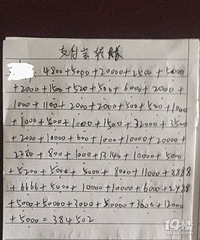 支付宝转账
4800+5000+20000+2500+5000
+2000+150+520+500+6000+2000+
1000+1100+2000+2000+500+500+1000
+1000+5000+1500+32000+3500
+2000+10000+600+1000+10000+20000+
2280+800+1000+13146+10000+5000
+5200+5000+5000+8000+11000+8888
+6666+5000+1000+10000+6000+2438
+5000+50000+3000+50000+3600+13000
+5000=384502